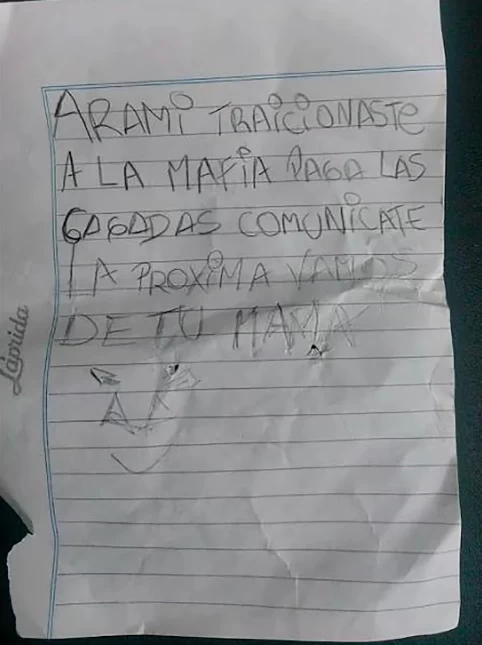 ARAMI TRAICIONASTE
A LA MAFIA PAGA LAS
CAGADAS COMUNICATE
LA PROXIMA VAMOS
DE TU MAMA
Láprida